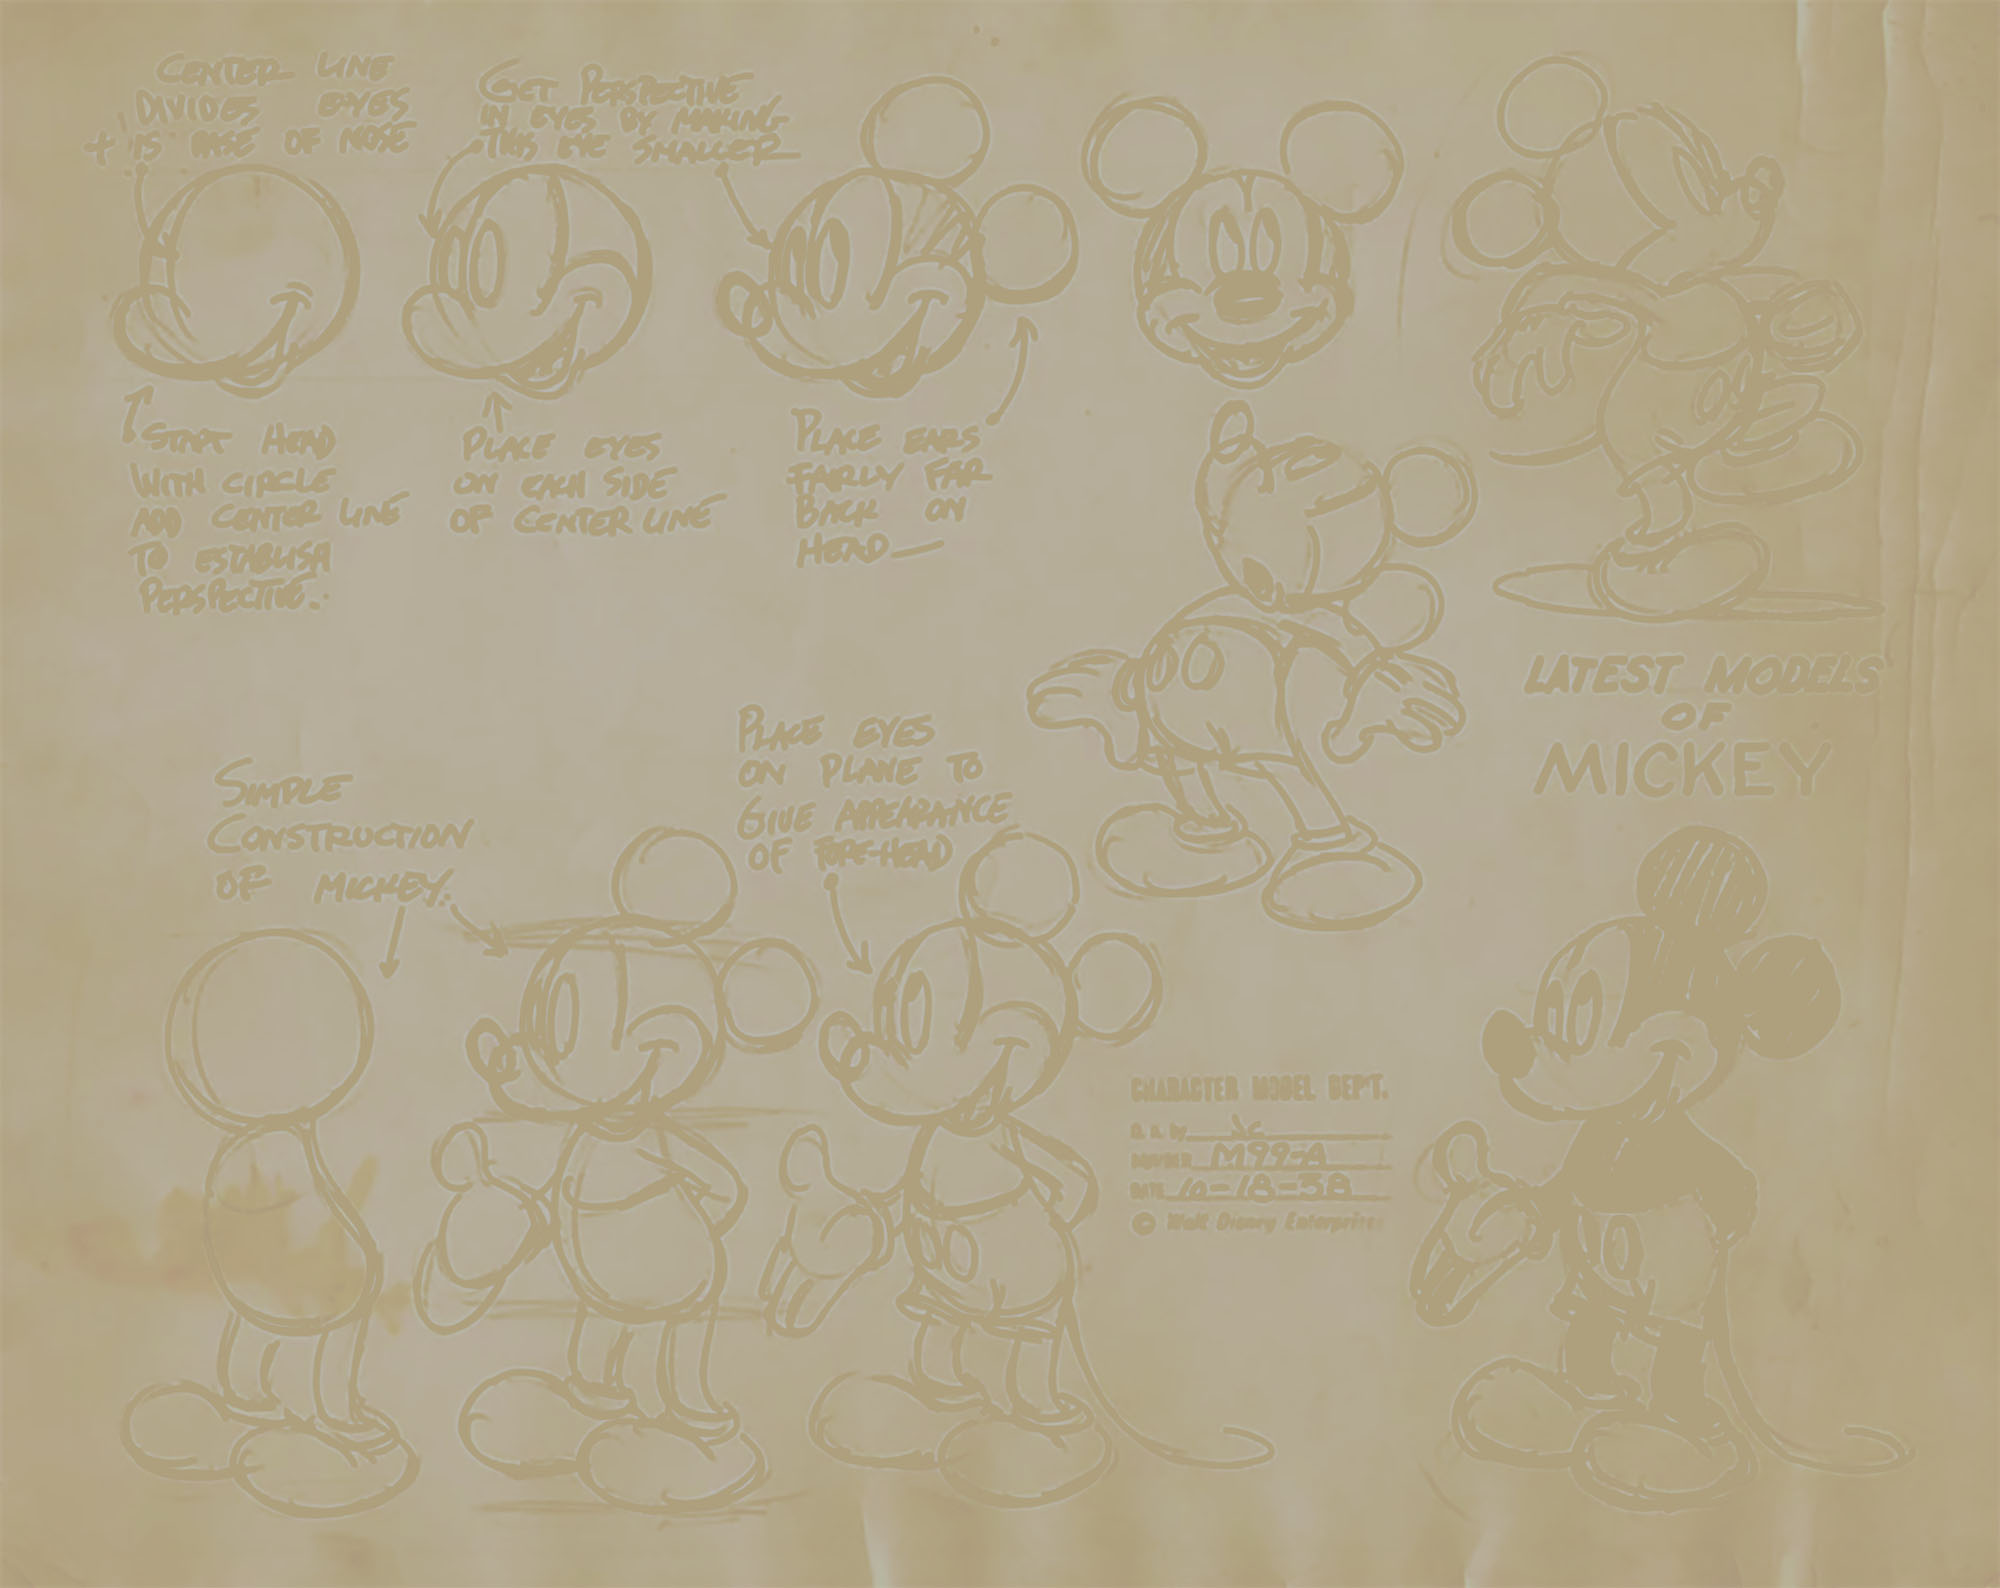 CENTER LINE
DIVIDES EYES
+ IS BASE OF NOSE
GET PERSPECTIVE
IN EYES BY MAKING
THIS EYE SMALLER
START HEAD
WITH CIRCLE
ADD CENTER LINE
TO ESTABLISH
PERSPECTIVE.
PLACE EYES
ON EACH SIDE
OF CENTER LINE
PLACE EARS
FAIRLY FAR
BACK ON
HEAD—
LATEST MODELS
OF
MICKEY
SIMPLE
CONSTRUCTION
OF MICKEY.
PLACE EYES
ON PLANE TO
GIVE APPEARANCE
OF FORE-HEAD
CHARACTER MODEL DEP'T.
NUMBER M99-A
DATE 10-18-38
© Walt Disney Enterprises